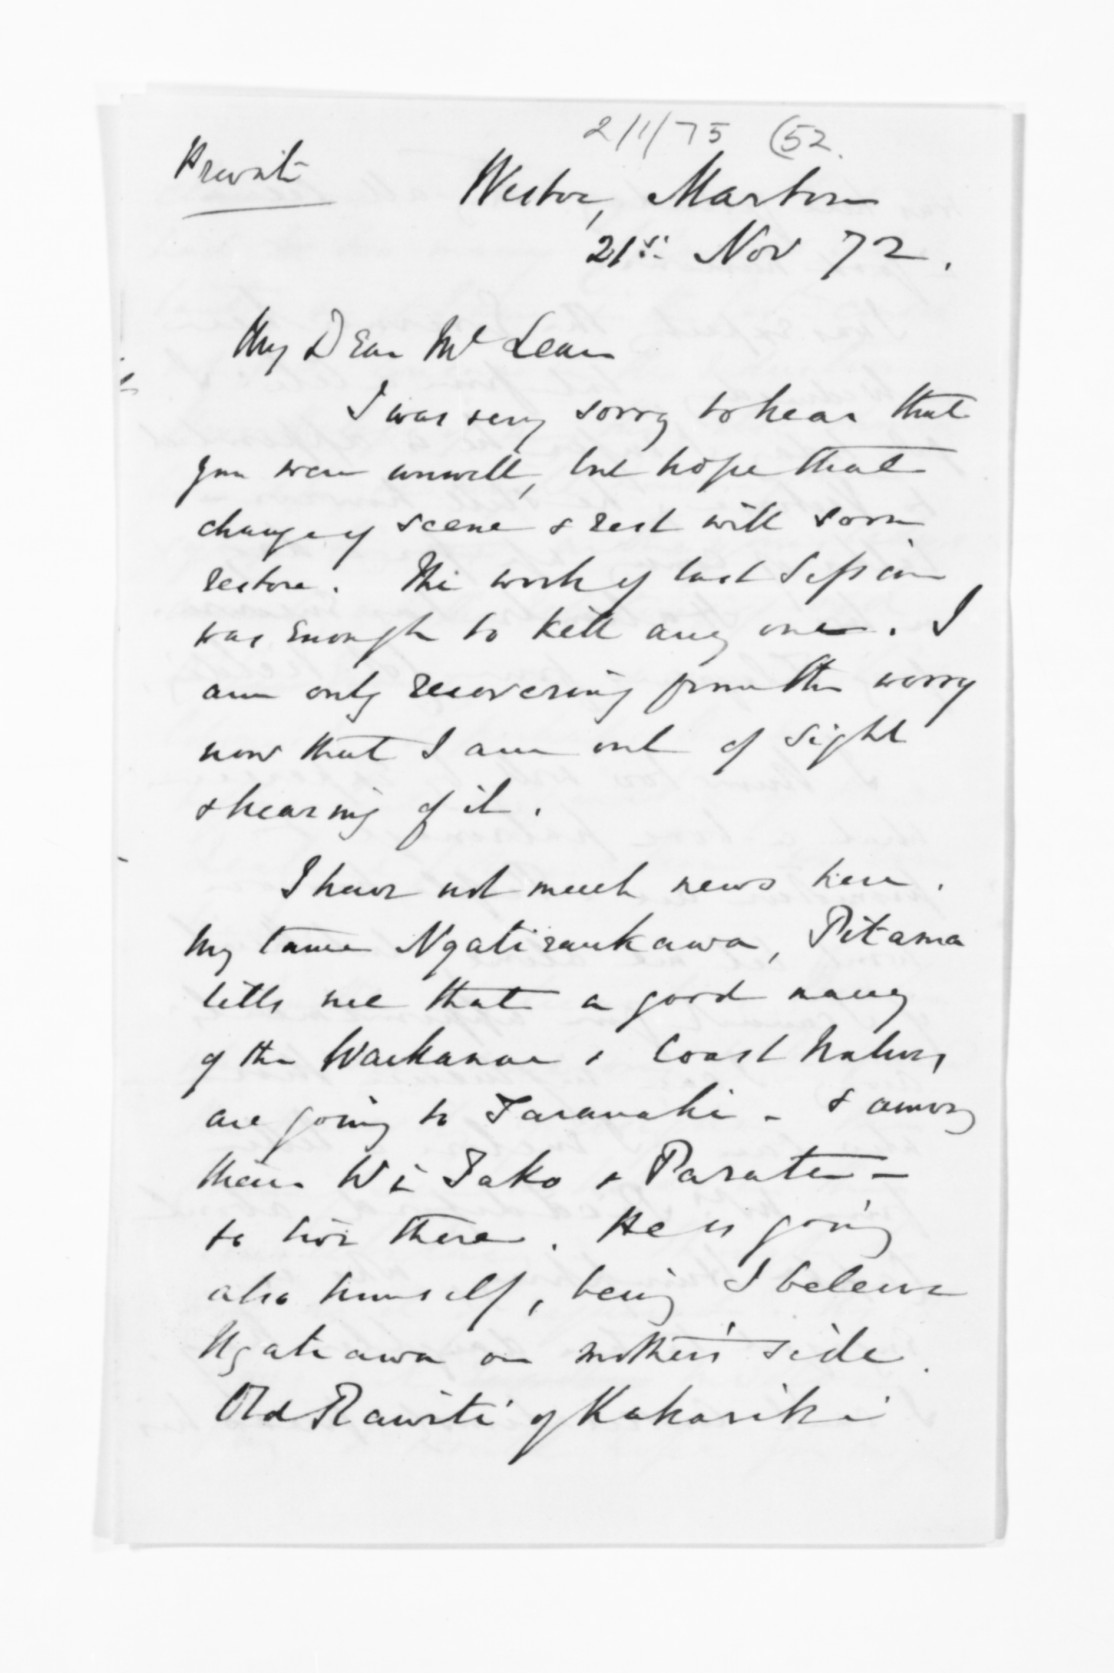 2/1/75 (52.
Private
Westoe, Marton
21st. Nov 72.
My Dear McLean
I was very sorry to hear that
you were unwell, but hope that
change of scene & rest will soon
restore. The work of last Session
was enough to kill any one. I
am only recovering from the worry
now that I am out of sight
& hearing of it.
I have not much news here.
My tame Ngatiraukawa, Pitama
tells me that a good many
of the Waikanae & Coast Natives
are going to Taranaki - & among
them Wi Tako & Parata -
to live there. He is going
also himself, being I believe
Ngatiawa on mother's side.
Old Rawiti of Kakariki